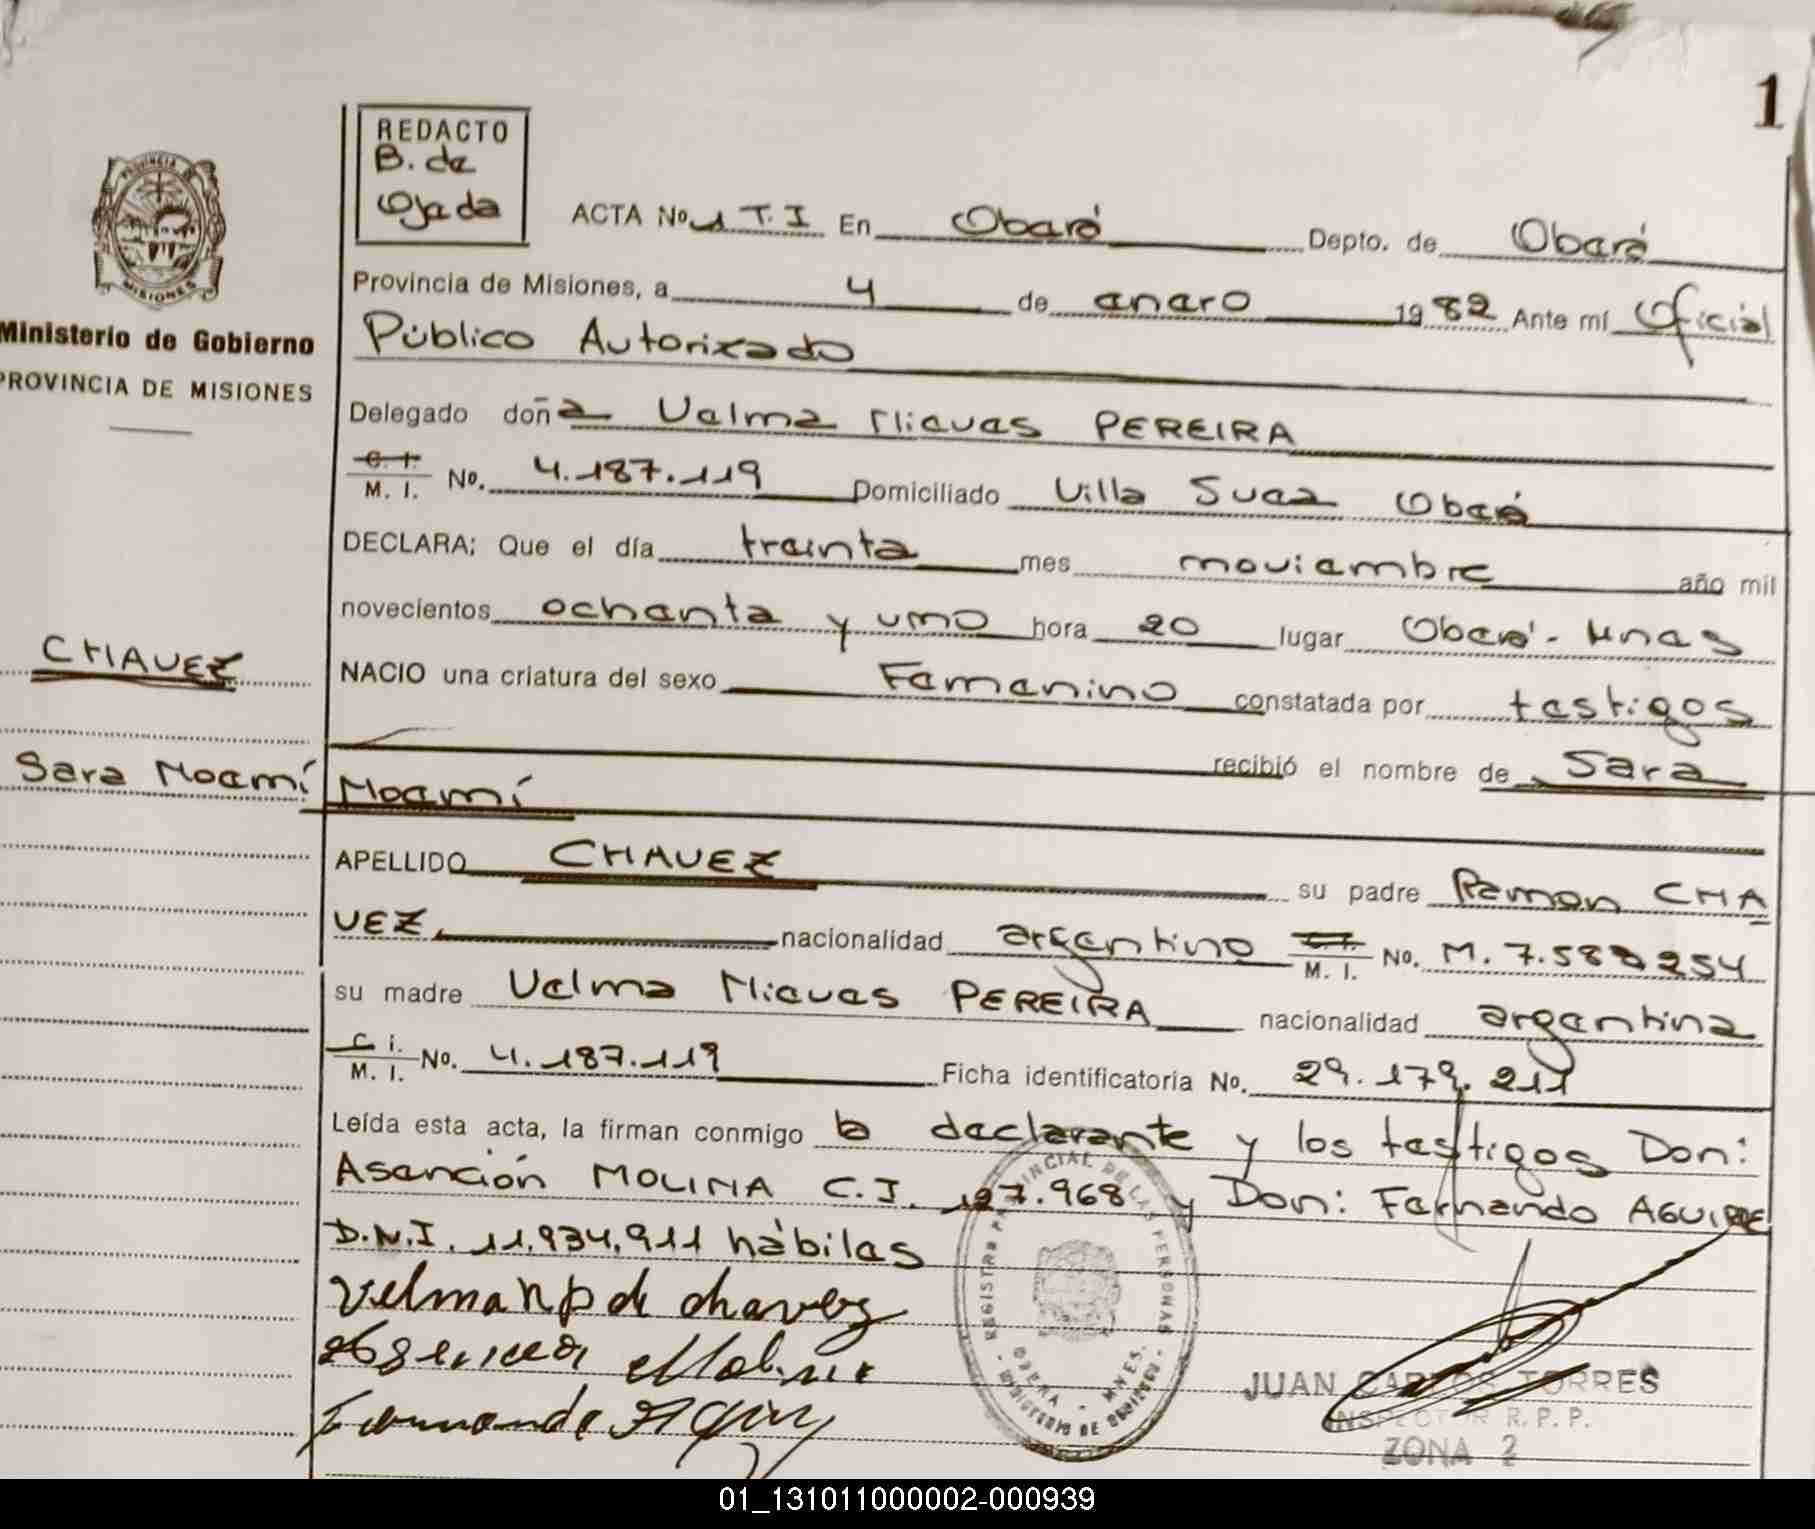 1
REDACTO
B. de
Ojeda
ACTA No. 1 T. I En Oberá Depto. de Oberá
PROVINCIA
MISIONES
Provincia de Misiones, a 4 de enero 1982 Ante mí Oficial
Ministerio de Gobierno
PROVINCIA DE MISIONES
Público Autorizado
Delegado doña Velma Nieves PEREIRA
C. I.
M. I. No. 4.187.119 Domiciliado Villa Svea Oberá
DECLARA: Que el día treinta mes noviembre año mil
novecientos ochenta y uno hora 20 lugar Oberá - Mnes
CHAVEZ
NACIO una criatura del sexo Femenino constatada por testigos
recibió el nombre de Sara
Sara Noemí
Noemí
APELLIDO CHAVEZ su padre Ramon CHA
VEZ nacionalidad argentino C.I. M. I. No. M. 7.58 254
su madre Velma Nieves PEREIRA nacionalidad argentina
C. i.
M. I. No. 4.187.119 Ficha identificatoria No. 29.179.211
Leída esta acta, la firman conmigo la declarante y los testigos Don:
Asención MOLINA C.I. 127.968 y Don: Fernando AGUIRRE
D.N.I. 11.934.911 hábiles
Velma N P de chavez
Molina
Fernando
REGISTRO PROVINCIAL DE LAS PERSONAS
OBERA - MNES.
MINISTERIO DE GOBIERNO
JUAN CARLOS TORRES
INSPECTOR R. P. P.
ZONA 2
01_131011000002-000939